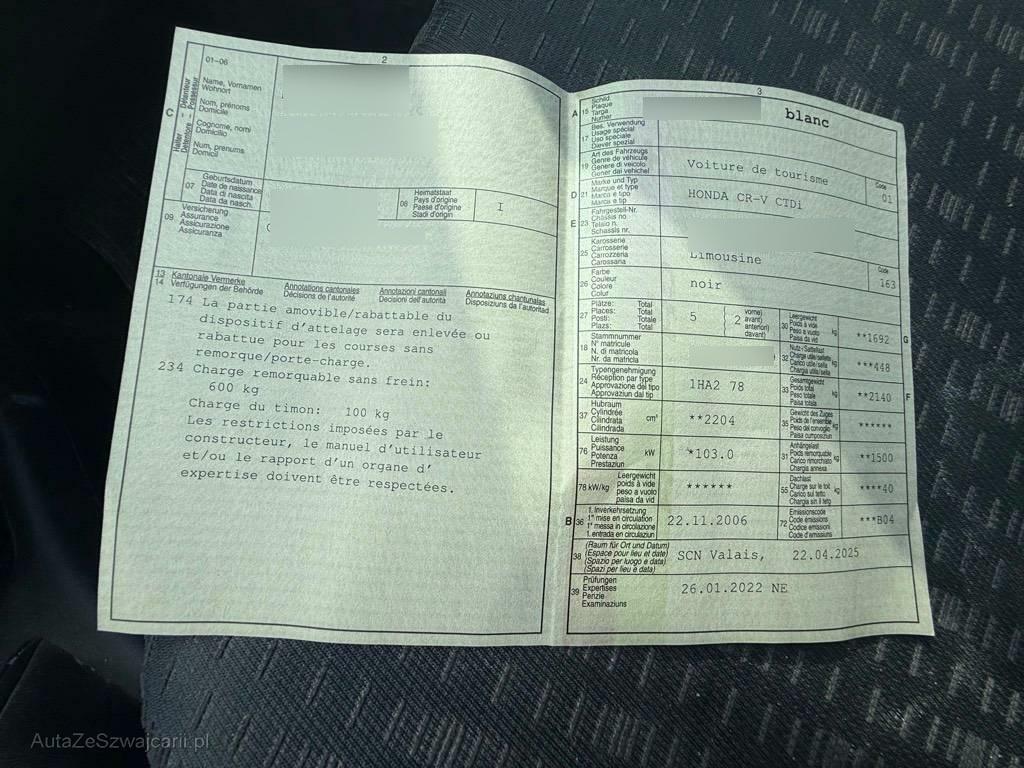 2
01–06
Name, Vornamen
Wohnort
Nom, prénoms
Domicile
Cognome, nomi
Domicilio
Num, prenums
Domicil
C
Halter - Détenteur
Detentore - Possessur
07
Geburtsdatum
Date de naissance
Data di nascita
Data da nasch.
08
Heimatstaat
Pays d'origine
Paese d'origine
Stadi d'origin
I
09
Versicherung
Assurance
Assicurazione
Assicuranza
13 Kantonale Vermerke Annotations cantonales Annotazioni cantonali Annotaziuns chantunalas
14 Verfügungen der Behörde Décisions de l'autorité Decisioni dell'autorità Disposiziuns da l'autoritad
174 La partie amovible/rabattable du
dispositif d'attelage sera enlevée ou
rabattue pour les courses sans
remorque/porte-charge.
234 Charge remorquable sans frein:
600 kg
Charge du timon: 100 kg
Les restrictions imposées par le
constructeur, le manuel d'utilisateur
et/ou le rapport d'un organe d'
expertise doivent être respectées.
3
A 15
Schild
Plaque
Targa
Numer
blanc
17
Bes. Verwendung
Usage spécial
Uso speciale
Diever spezial
19
Art des Fahrzeugs
Genre de véhicule
Genere di veicolo
Gener dal vehichel
Voiture de tourisme
Code
01
D 21
Marke und Typ
Marque et type
Marca e tipo
Marca e tip
HONDA CR-V CTDi
E 23
Fahrgestell-Nr.
Châssis no
Telaio n.
Schassis nr.
25
Karosserie
Carrosserie
Carrozzeria
Carossaria
Limousine
Code
163
26
Farbe
Couleur
Colore
Colur
noir
27
Plätze: Total
Places: Total
Posti: Totale
Plazs: Total
5
2
vorne)
avant)
anteriori)
davant)
30
Leergewicht
Poids à vide
Peso a vuoto
Paisa da vid
kg
**1692
G
18
Stammnummer
N° matricule
N. di matricola
Nr. da matricla
32
Nutz-/Sattellast
Charge utile/sellette
Carico utile/sella
Chargia utila/sella
kg
***448
24
Typengenehmigung
Réception par type
Approvazione del tipo
Approvaziun dal tip
1HA2 78
33
Gesamtgewicht
Poids total
Peso totale
Paisa totala
kg
**2140
F
37
Hubraum
Cylindrée
Cilindrata
Cilindrada
cm³
**2204
35
Gewicht des Zuges
Poids de l'ensemble
Peso del convoglio
Paisa cumposiziun
kg
******
76
Leistung
Puissance
Potenza
Prestaziun
kW
*103.0
31
Anhängelast
Poids remorquable
Carico rimorchiato
Chargia annexa
kg
**1500
78 kW/kg
Leergewicht
poids à vide
peso a vuoto
paisa da vid
******
55
Dachlast
Charge sur le toit
Carico sul tetto
Chargia sin il tetg
kg
****40
B 36
1. Inverkehrsetzung
1re mise en circulation
1a messa in circolazione
1. entrada en circulaziun
22.11.2006
72
Emissionscode
Code émissions
Codice emissioni
Code d'emissiuns
***B04
38
(Raum für Ort und Datum)
(Espace pour lieu et date)
(Spazio per luogo e data)
(Spazi per lieu e data)
SCN Valais, 22.04.2025
39
Prüfungen
Expertises
Perizie
Examinaziuns
26.01.2022 NE
AutaZeSzwajcarii.pl